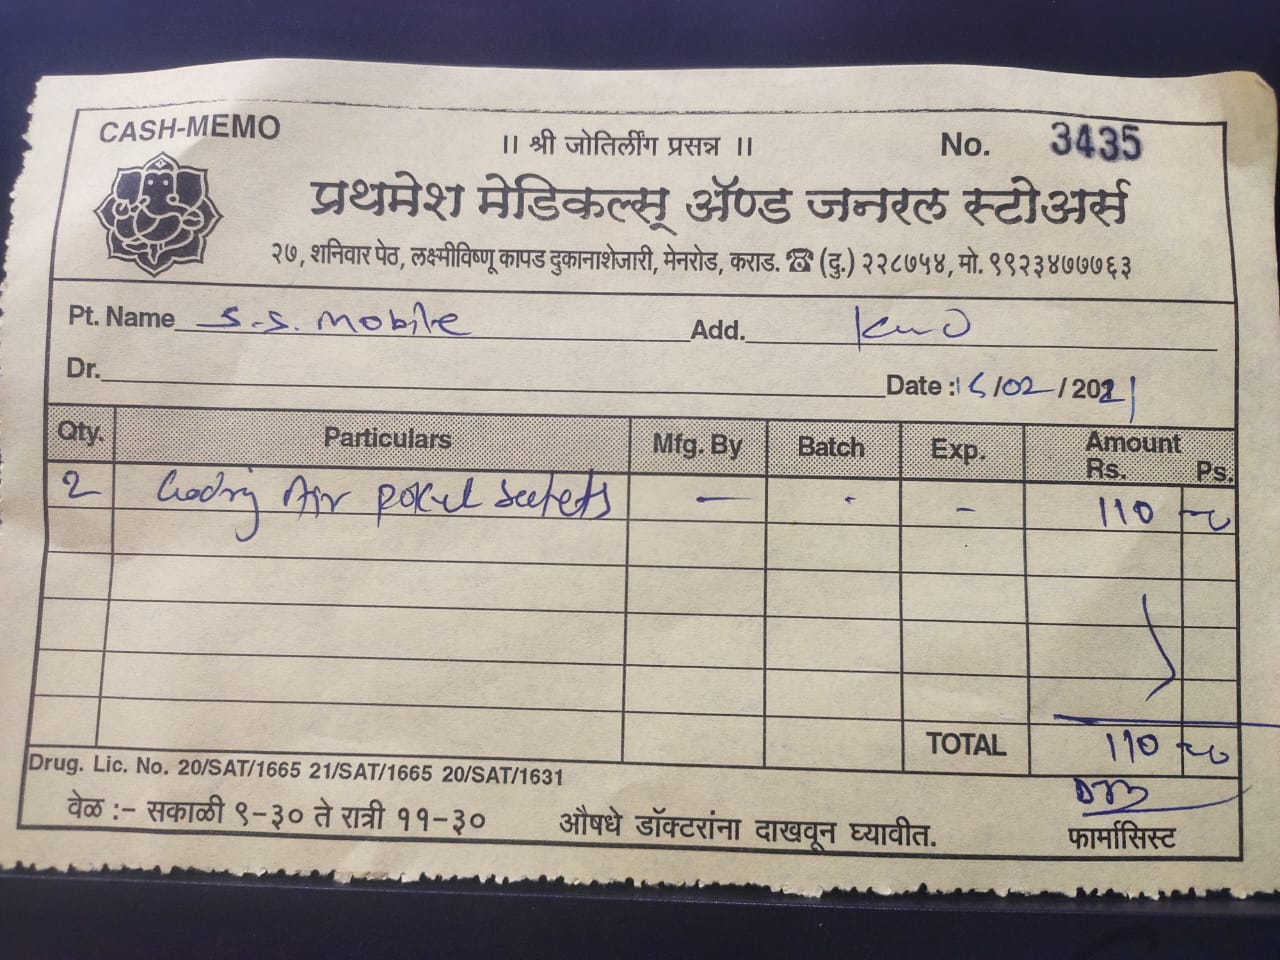 CASH-MEMO
॥ श्री जोतिर्लींग प्रसन्न ॥
No. 3435
प्रथमेश मेडिकल्स् ॲण्ड जनरल स्टोअर्स
२७, शनिवार पेठ, लक्ष्मीविष्णू कापड दुकानाशेजारी, मेनरोड, कराड. ☎ (दु.) २२८७५४, मो. ९९२३४७७७६३
Pt. Name S.S. Mobile Add.
Dr. Date : /02/2021
Qty. Particulars Mfg. By Batch Exp. Amount Rs. Ps.
2 Godrej Air Poket - - 110
TOTAL 110
Drug. Lic. No. 20/SAT/1665 21/SAT/1665 20/SAT/1631
वेळ :- सकाळी ९-३० ते रात्री ११-३० औषधे डॉक्टरांना दाखवून घ्यावीत. फार्मासिस्ट